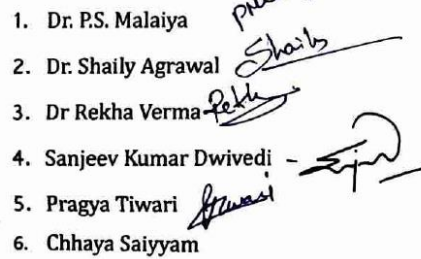 1. Dr. P.S. Malaiya
2. Dr. Shaily Agrawal Shaily
3. Dr Rekha Verma Rekh
4. Sanjeev Kumar Dwivedi -
5. Pragya Tiwari
6. Chhaya Saiyyam